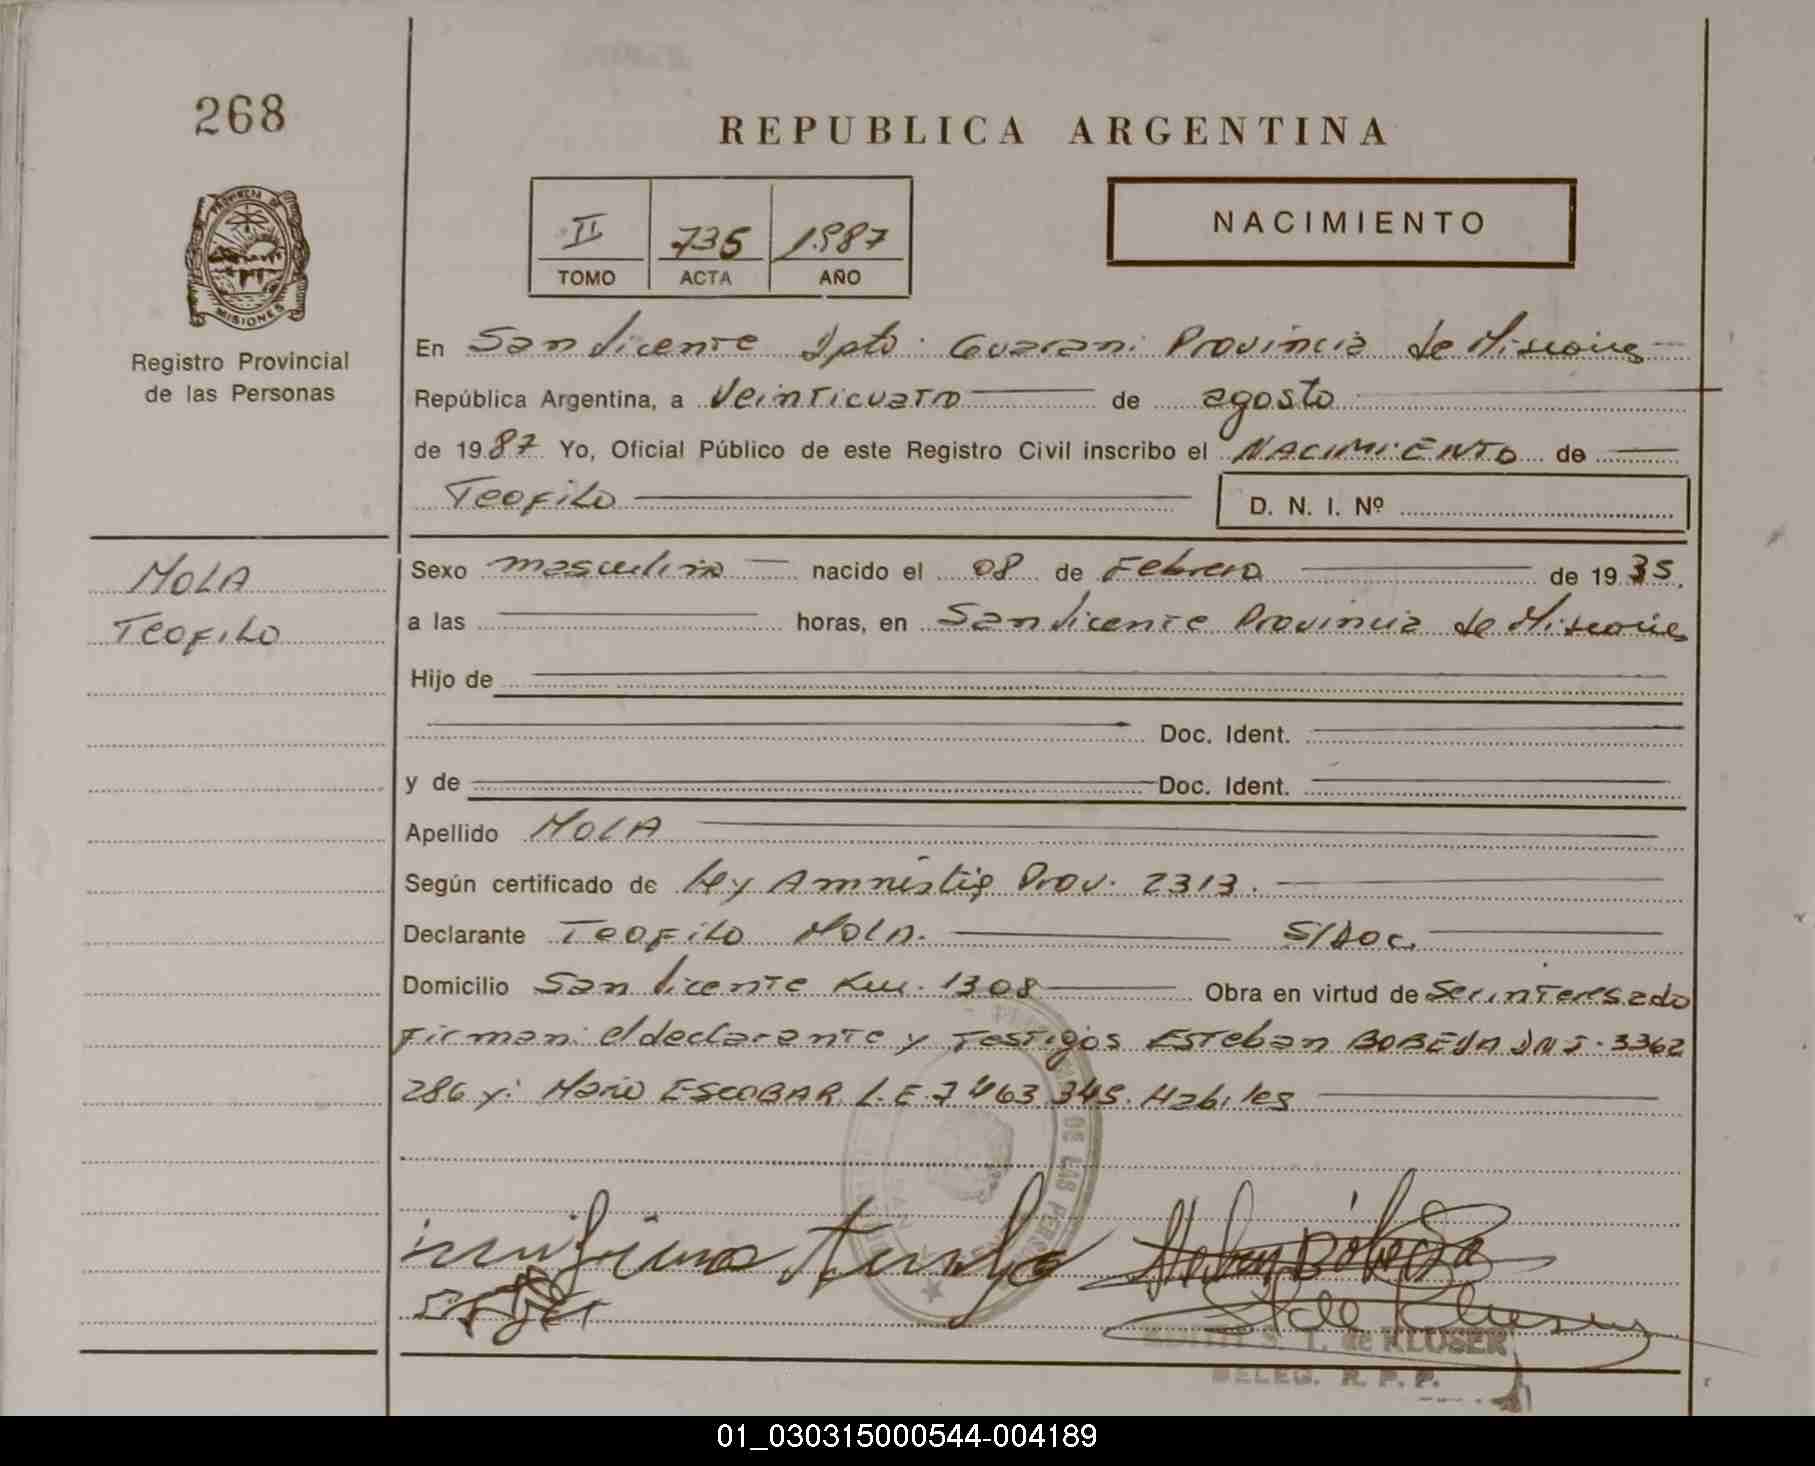 268
REPUBLICA ARGENTINA
II 735 1987
TOMO ACTA AÑO
NACIMIENTO
PROVINCIA DE MISIONES
Registro Provincial
de las Personas
En San Vicente Dpto. Guarani Provincia de Misiones
República Argentina, a Veinticuatro de agosto
de 1987 Yo, Oficial Público de este Registro Civil inscribo el NACIMIENTO de
Teofilo D. N. I. Nº
MOLA
Teofilo
Sexo masculino nacido el 08 de Febrero de 1935.
a las horas, en San Vicente Provincia de Misiones
Hijo de
Doc. Ident.
y de Doc. Ident.
Apellido MOLA
Según certificado de Ley Amnistia Prov. 2313.
Declarante Teofilo Mola. S/Doc.
Domicilio San Vicente Km. 1308 Obra en virtud de Ser interesado
Firman: el declarante y Testigos Esteban BOBEDA DNI. 3362
286 y: Mario ESCOBAR L.E. 7463.345. Habiles
DE LAS PERSONAS
EDITH S. T. de KLUSER
DELEG. R. P. P.
01_030315000544-004189